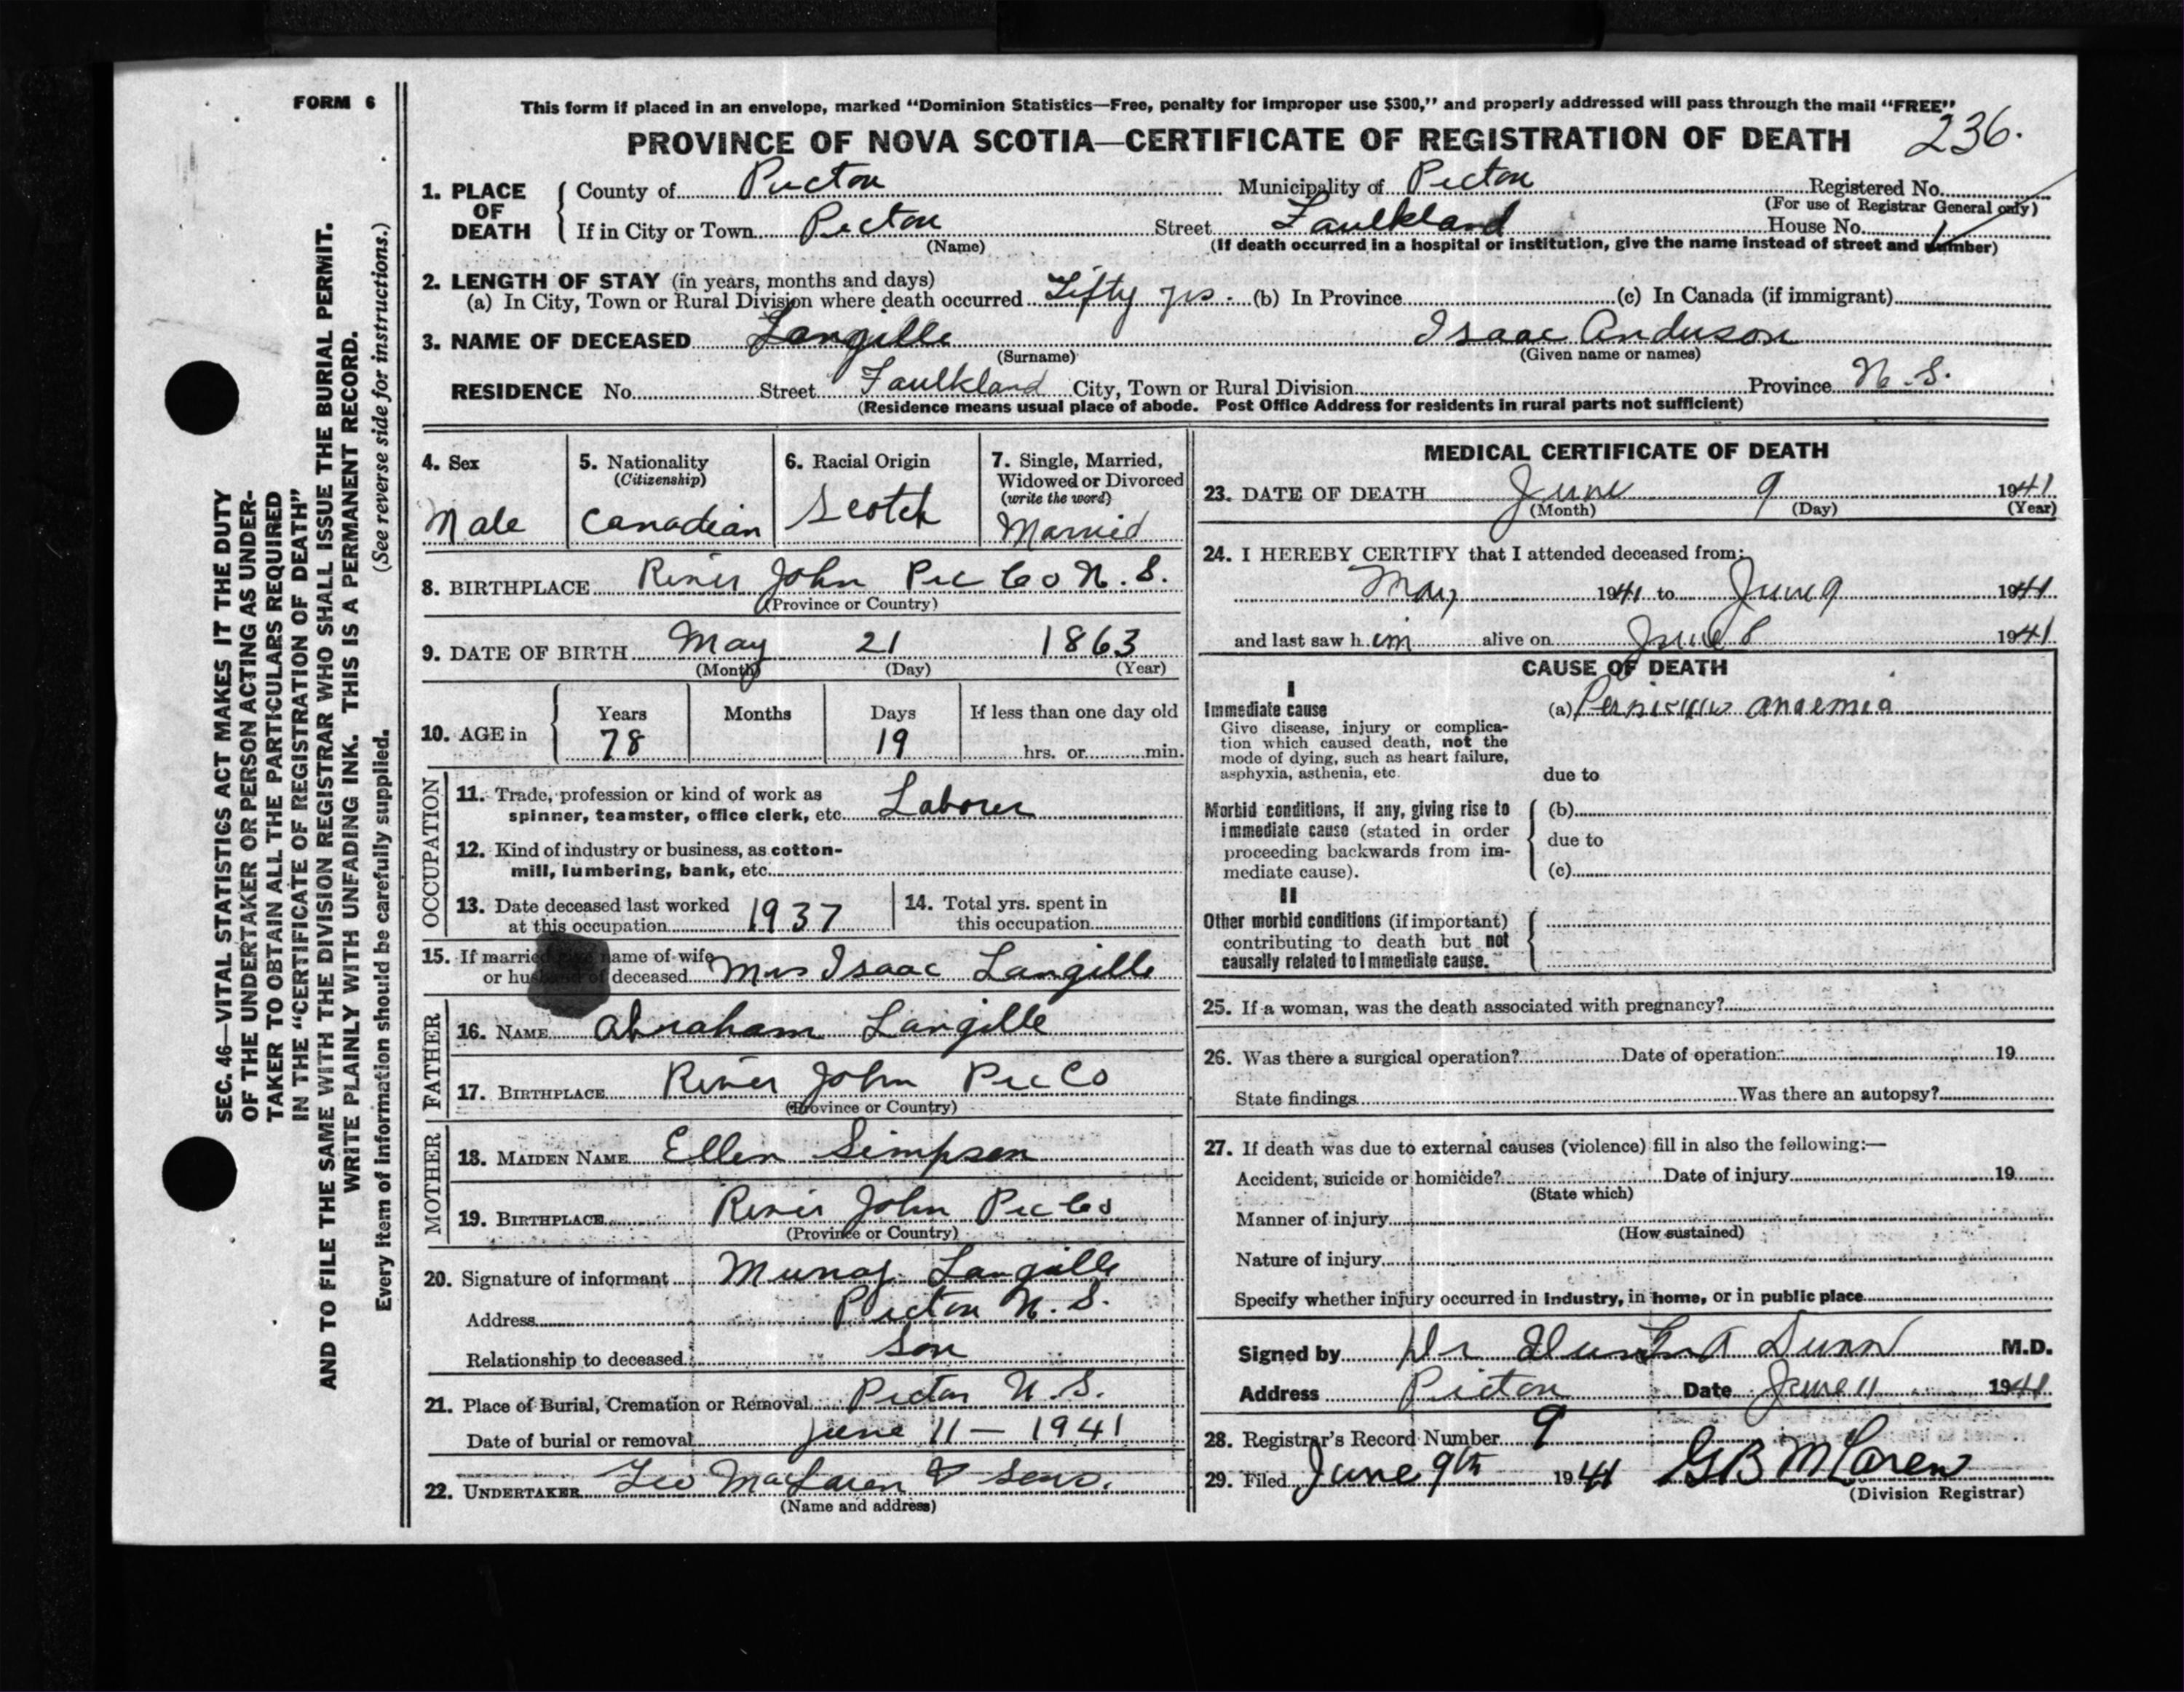 FORM 6
This form if placed in an envelope, marked “Dominion Statistics—Free, penalty for improper use $300,” and properly addressed will pass through the mail “FREE”
PROVINCE OF NOVA SCOTIA—CERTIFICATE OF REGISTRATION OF DEATH 236.
1. PLACE OF DEATH
County of Pictou Municipality of Pictou Registered No.
(For use of Registrar General only)
If in City or Town Pictou Street Faulkland House No.
(Name) (If death occurred in a hospital or institution, give the name instead of street and number)
2. LENGTH OF STAY (in years, months and days)
(a) In City, Town or Rural Division where death occurred Fifty yrs. (b) In Province (c) In Canada (if immigrant)
3. NAME OF DECEASED Langille Isaac Anderson
(Surname) (Given name or names)
RESIDENCE No. Street Faulkland City, Town or Rural Division Province N.S.
(Residence means usual place of abode. Post Office Address for residents in rural parts not sufficient)
4. Sex
Male
5. Nationality
(Citizenship)
Canadian
6. Racial Origin
Scotch
7. Single, Married,
Widowed or Divorced
(write the word)
Married
8. BIRTHPLACE River John Pic Co N.S.
(Province or Country)
9. DATE OF BIRTH May 21 1863
(Month) (Day) (Year)
10. AGE in
Years Months Days If less than one day old
78 19 hrs. or min.
OCCUPATION
11. Trade, profession or kind of work as
spinner, teamster, office clerk, etc. Laborer
12. Kind of industry or business, as cotton-
mill, lumbering, bank, etc.
13. Date deceased last worked
at this occupation 1937
14. Total yrs. spent in
this occupation
15. If married name of wife
or deceased Mrs Isaac Langille
FATHER
16. NAME Abraham Langille
17. BIRTHPLACE River John Pic Co
(Province or Country)
MOTHER
18. MAIDEN NAME Ellen Simpson
19. BIRTHPLACE River John Pic Co
(Province or Country)
20. Signature of informant Langille
Address Pictou N.S.
Relationship to deceased Son
21. Place of Burial, Cremation or Removal Pictou N.S.
Date of burial or removal June 11 — 1941
22. UNDERTAKER Geo MacLaren & Sons.
(Name and address)
MEDICAL CERTIFICATE OF DEATH
23. DATE OF DEATH June 9 1941
(Month) (Day) (Year)
24. I HEREBY CERTIFY that I attended deceased from:
May 1941 to June 9 1941
and last saw him alive on June 8 1941
CAUSE OF DEATH
I
Immediate cause
Give disease, injury or complica-
tion which caused death, not the
mode of dying, such as heart failure,
asphyxia, asthenia, etc.
(a) Pernicious anaemia
due to
Morbid conditions, if any, giving rise to
immediate cause (stated in order
proceeding backwards from im-
mediate cause).
(b)
due to
(c)
II
Other morbid conditions (if important)
contributing to death but not
causally related to immediate cause.
25. If a woman, was the death associated with pregnancy?
26. Was there a surgical operation? Date of operation 19
State findings Was there an autopsy?
27. If death was due to external causes (violence) fill in also the following:—
Accident, suicide or homicide? Date of injury 19
(State which)
Manner of injury
(How sustained)
Nature of injury
Specify whether injury occurred in industry, in home, or in public place
Signed by Dr Dunn M.D.
Address Pictou Date June 11 1941
28. Registrar's Record Number 9
29. Filed June 9th 1941 GB McLaren
(Division Registrar)
SEC. 46—VITAL STATISTICS ACT MAKES IT THE DUTY
OF THE UNDERTAKER OR PERSON ACTING AS UNDER-
TAKER TO OBTAIN ALL THE PARTICULARS REQUIRED
IN THE “CERTIFICATE OF REGISTRATION OF DEATH”
AND TO FILE THE SAME WITH THE DIVISION REGISTRAR WHO SHALL ISSUE THE BURIAL PERMIT.
WRITE PLAINLY WITH UNFADING INK. THIS IS A PERMANENT RECORD.
Every item of information should be carefully supplied. (See reverse side for instructions.)